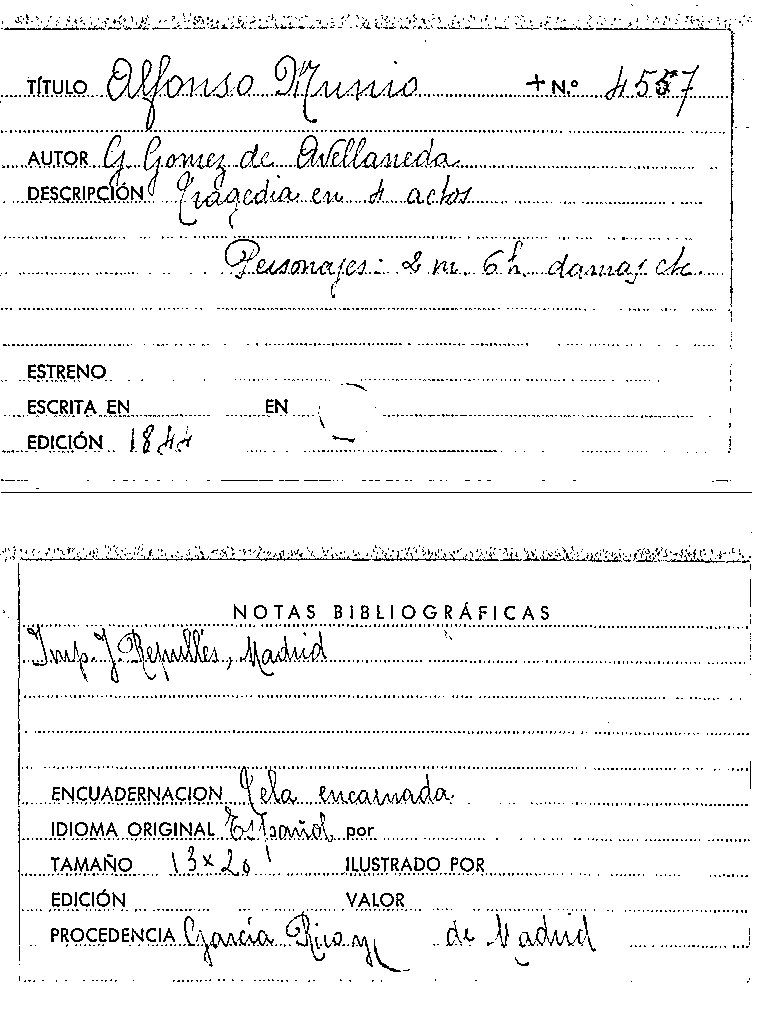 TÍTULO Alfonso Munio + N.º 4557
AUTOR G. Gomez de Avellaneda
DESCRIPCIÓN Tragedia en 4 actos
Personajes: 2 m. 6 h. damas, etc.
ESTRENO
ESCRITA EN EN
EDICIÓN 1844
NOTAS BIBLIOGRÁFICAS
Imp. J. Repullés, Madrid
ENCUADERNACION Tela encarnada
IDIOMA ORIGINAL Español por
TAMAÑO 13 x 20 ILUSTRADO POR
EDICIÓN VALOR
PROCEDENCIA García Rico y de Madrid